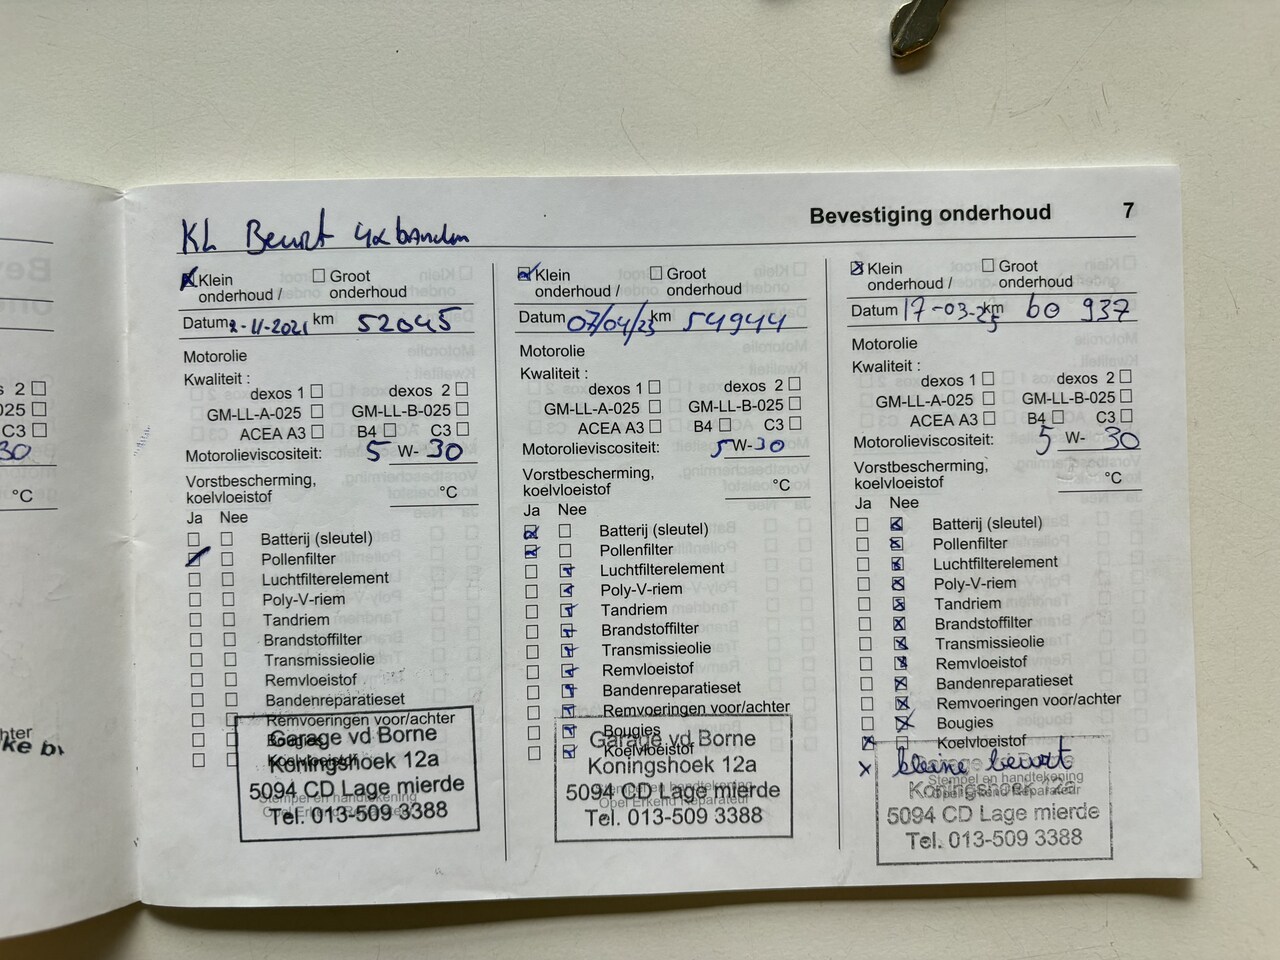 Bevestiging onderhoud 7
KL Beurt 4x banden
Klein onderhoud / Groot onderhoud
Datum 2-11-2021 km 52045
Motorolie
Kwaliteit :
dexos 1 dexos 2
GM-LL-A-025 GM-LL-B-025
ACEA A3 B4 C3
Motorolieviscositeit: 5 W- 30
Vorstbescherming,
koelvloeistof °C
Ja Nee
Batterij (sleutel)
Pollenfilter
Luchtfilterelement
Poly-V-riem
Tandriem
Brandstoffilter
Transmissieolie
Remvloeistof
Bandenreparatieset
Remvoeringen voor/achter
Bougies
Koelvloeistof
Garage vd Borne
Koningshoek 12a
5094 CD Lage mierde
Tel. 013-509 3388
Stempel en handtekening
Klein onderhoud / Groot onderhoud
Datum 07/04/23 km 54944
Motorolie
Kwaliteit :
dexos 1 dexos 2
GM-LL-A-025 GM-LL-B-025
ACEA A3 B4 C3
Motorolieviscositeit: 5 W- 30
Vorstbescherming,
koelvloeistof °C
Ja Nee
Batterij (sleutel)
Pollenfilter
Luchtfilterelement
Poly-V-riem
Tandriem
Brandstoffilter
Transmissieolie
Remvloeistof
Bandenreparatieset
Remvoeringen voor/achter
Bougies
Koelvloeistof
Garage vd Borne
Koningshoek 12a
5094 CD Lage mierde
Tel. 013-509 3388
Stempel en handtekening
Opel Erkend Reparateur
Klein onderhoud / Groot onderhoud
Datum 17-03-25 km 60 937
Motorolie
Kwaliteit :
dexos 1 dexos 2
GM-LL-A-025 GM-LL-B-025
ACEA A3 B4 C3
Motorolieviscositeit: 5 W- 30
Vorstbescherming,
koelvloeistof °C
Ja Nee
Batterij (sleutel)
Pollenfilter
Luchtfilterelement
Poly-V-riem
Tandriem
Brandstoffilter
Transmissieolie
Remvloeistof
Bandenreparatieset
Remvoeringen voor/achter
Bougies
Koelvloeistof
x kleine beurt
Stempel en handtekening
Opel Erkend Reparateur
Koningshoek 12a
5094 CD Lage mierde
Tel. 013-509 3388